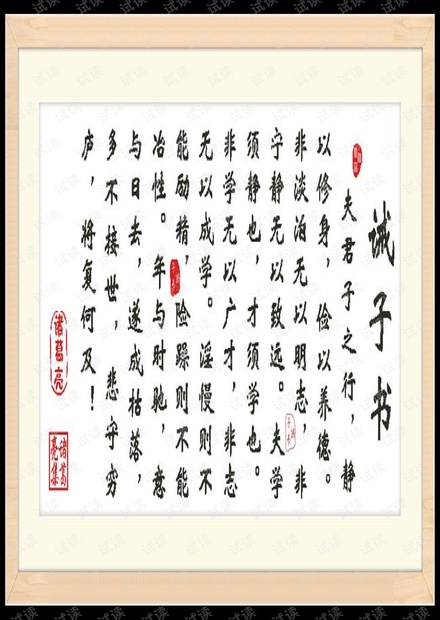 诫子书
夫君子之行，静
以修身，俭以养德。
非淡泊无以明志，非
宁静无以致远。夫学
须静也，才须学也。
非学无以广才，非志
无以成学。淫慢则不
能励精，险躁则不能
冶性。年与时驰，意
与日去，遂成枯落，
多不接世，悲守穷
庐，将复何及！
诸葛亮
诸葛亮集
试读